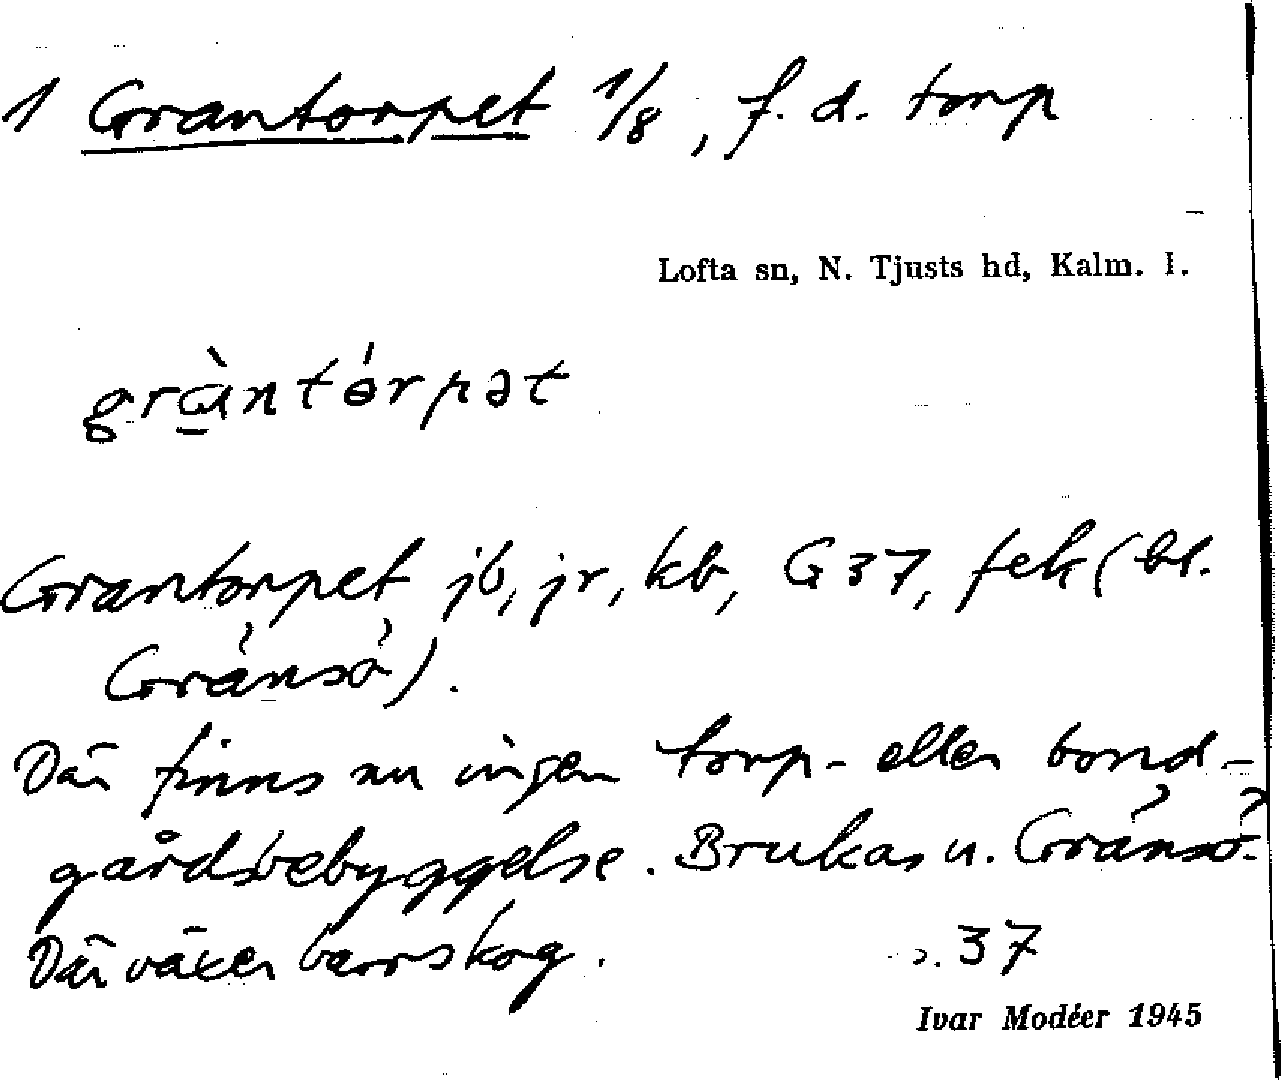 1 Grantorpet 1/8, f. d. torp
Lofta sn, N. Tjusts hd, Kalm. l.
gràntórpət
Grantorpet jb, jr, kb, G 37, fek (bl.
Gränsö).
Där finns nu ingen torp- eller bond-
gårdsbebyggelse. Brukas u. Gränsö.
Där växer barrskog. 37
Ivar Modéer 1945